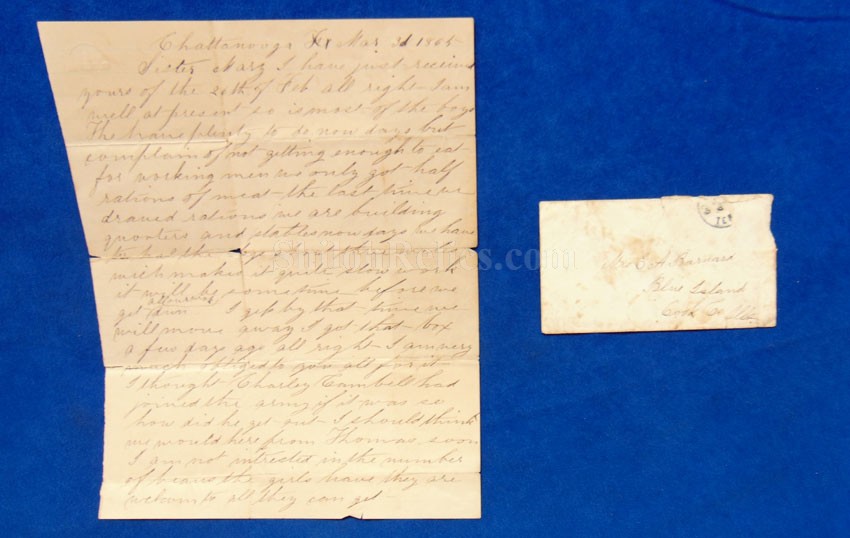 Chattanooga Mar 3d 1865
Sister Mary I have just receivd
yours of the 20th of Feb all right I am
well at present so is most of the boys
The have plenty to do now days but
complain of not getting enough to eat
for working men we only got half
rations of meat the last time we
drawed rations we are building
quarters and stables now days we have
to the
wich makes it quite slow work
it will be sometime before we
allowanced
get thru I gess by that time we
will move away I got that box
a few days ago all right I am very
much obliged to you all for it
I thought Charley Cambell had
joined the army if it was so
how did he get out I should think
we would here from Thomas soon
I am not intrested in the number
of beaus the girls have they are
welcom to all they can get
ShilohRelics.com
TEN
Barnard
Blue Island
Cook Co Ills